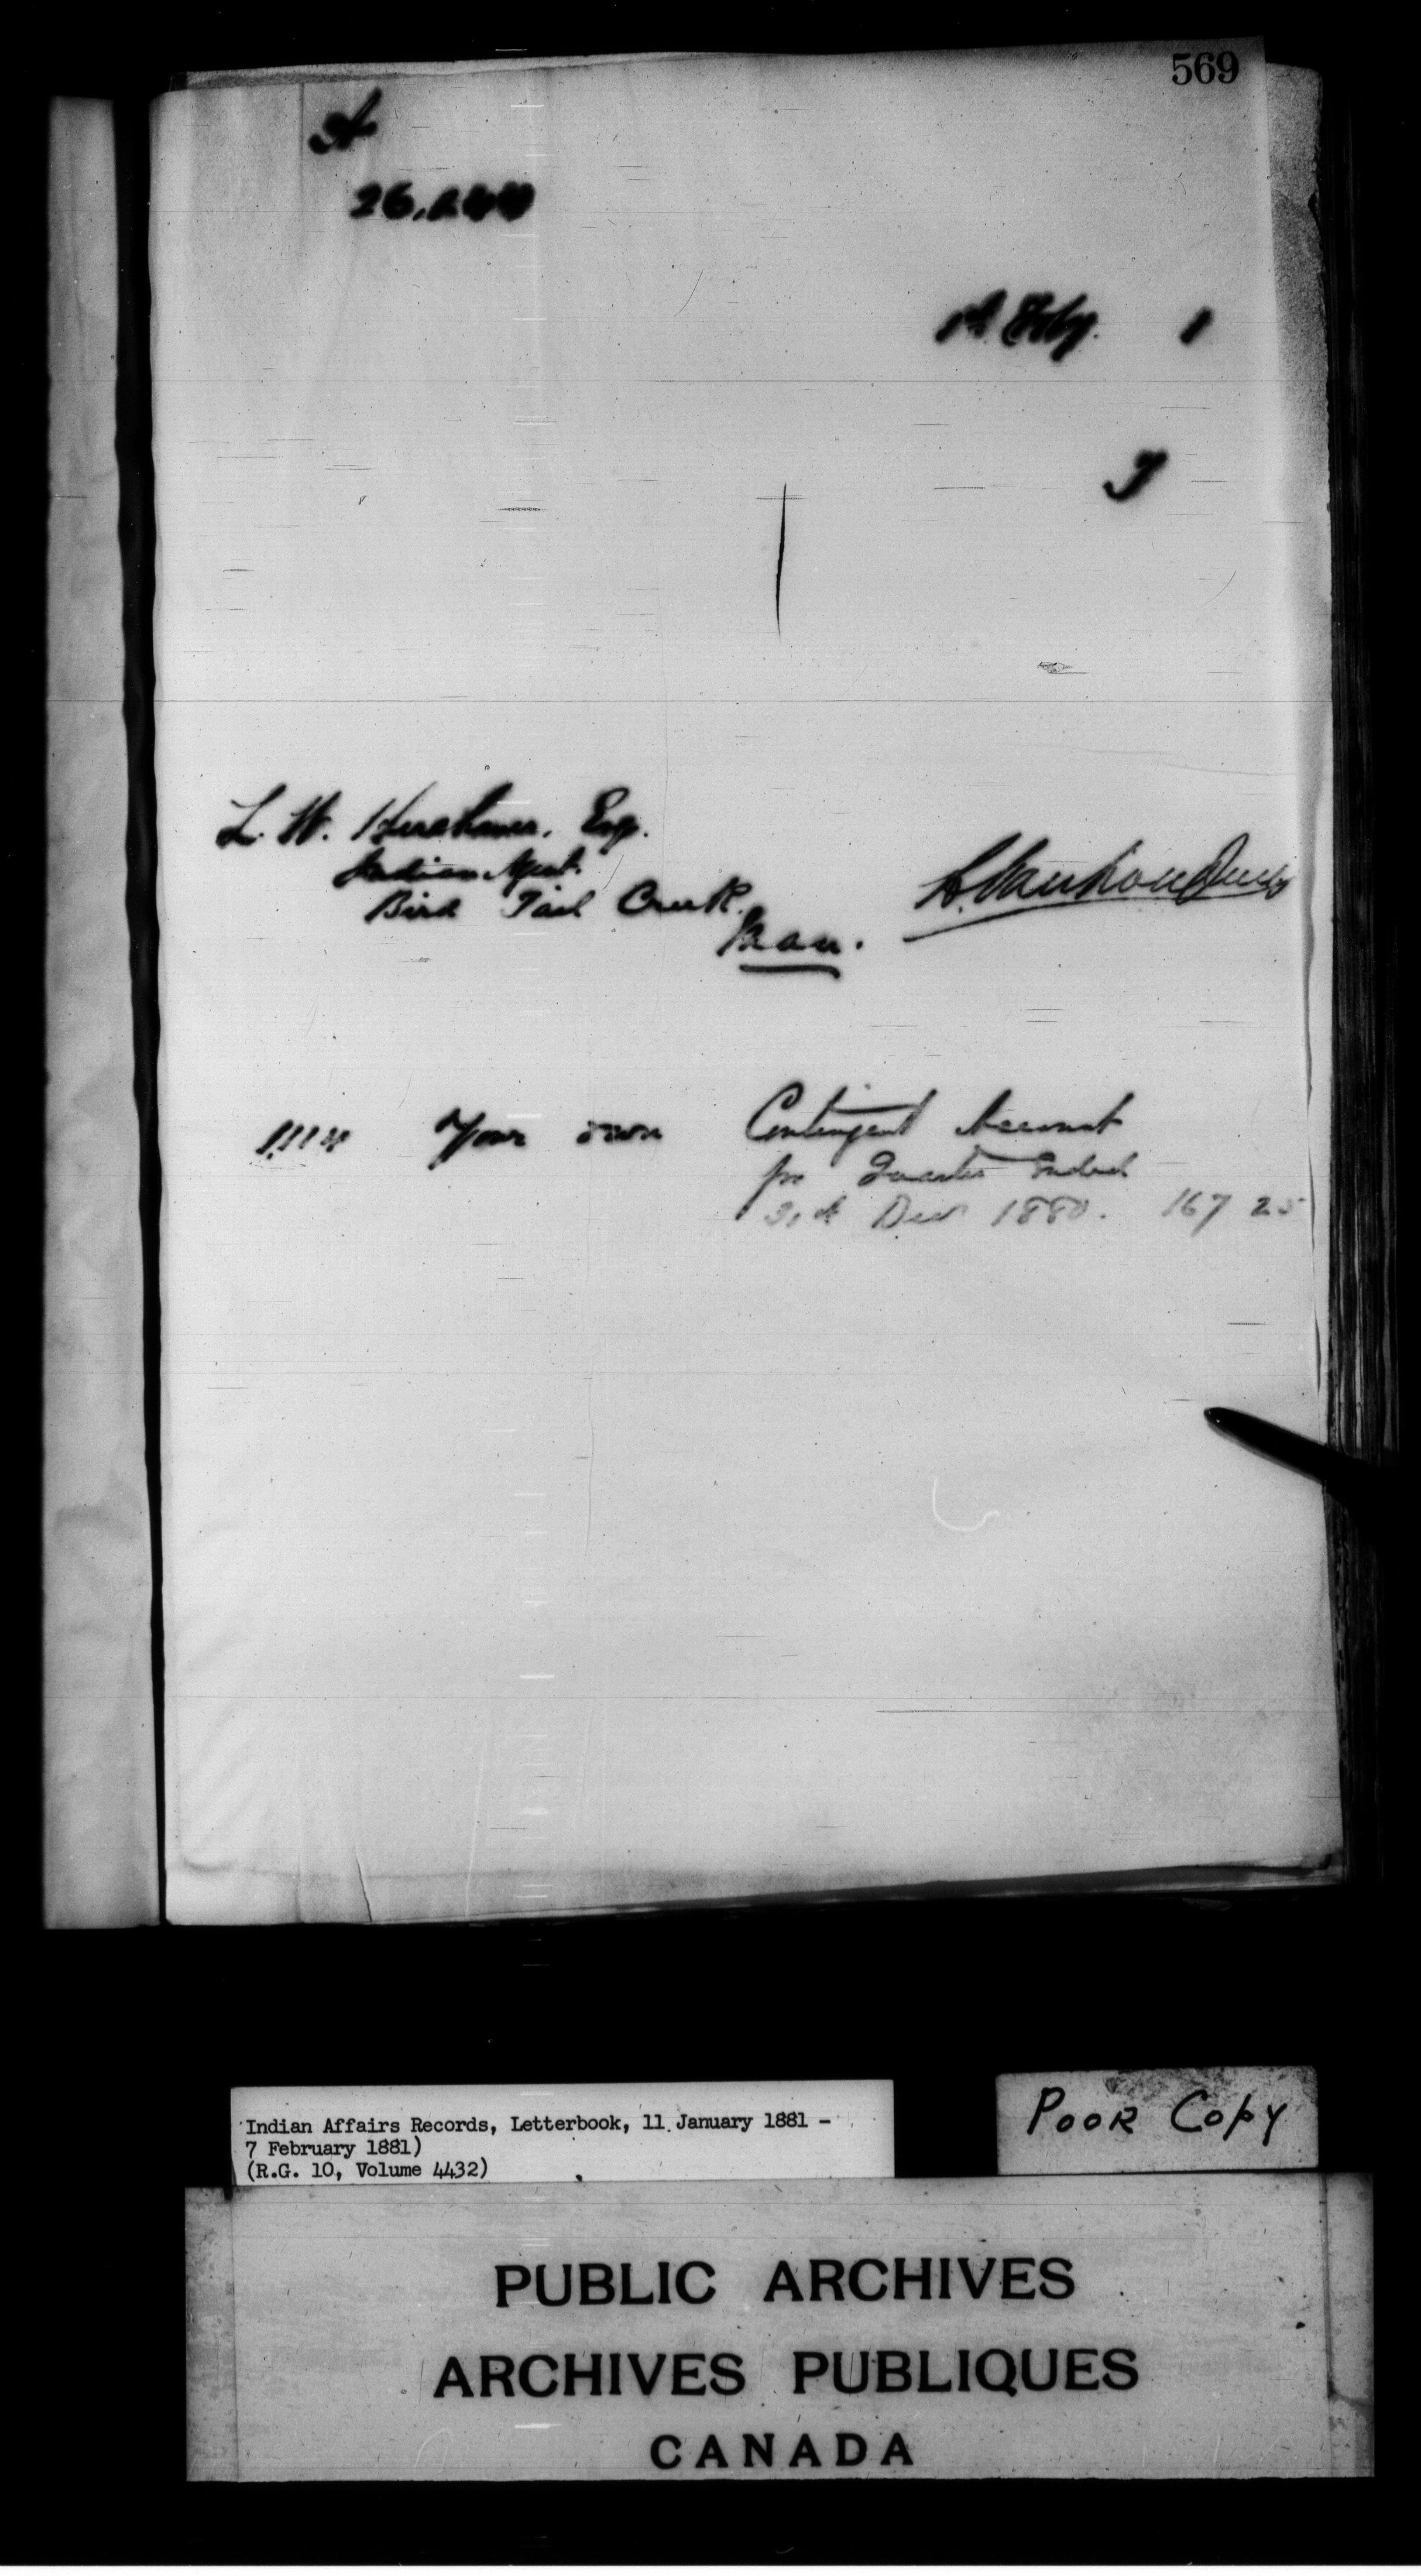 569
A
26,244
1st Feby. 1
I
L. W. Herchmer, Esq.
Indian Agent.
Bird Tail Creek.
Man.
L. VanKoughnet
Your own Contingent Account
for Quarter Ended
31st Dec 1880. 167 25
Indian Affairs Records, Letterbook, 11 January 1881 -
7 February 1881)
(R.G. 10, Volume 4432)
POOR COPY
PUBLIC ARCHIVES
ARCHIVES PUBLIQUES
CANADA